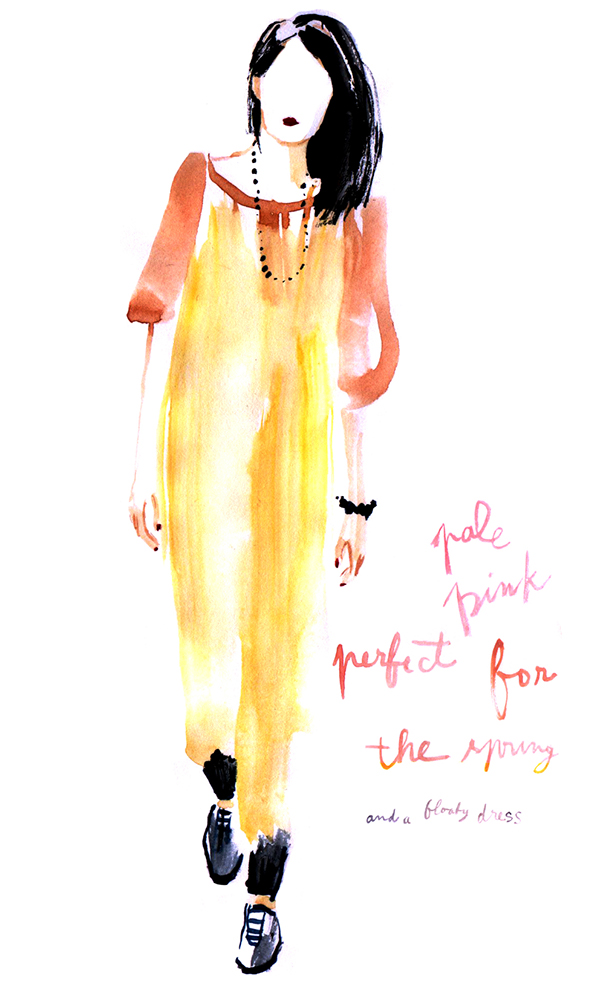 pale
pink
perfect for
the spring
and a bloaty dress